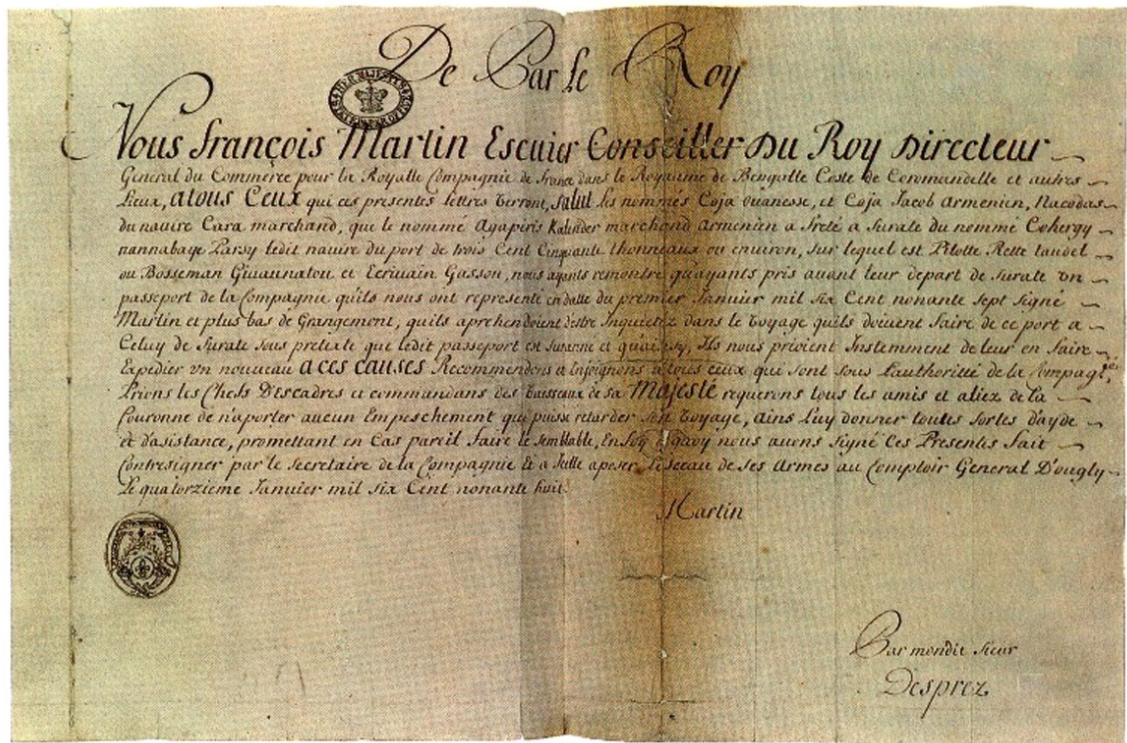 De Par Le Roy
Nous François Martin Escuier Conseiller Du Roy Directeur
General du Commerce pour la Royalle Compagnie de france dans le Royaume de Bengalle Coste de Coromandelle et autres
Lieux, atous Ceux qui ces presentes lettres verront, salut les nommés Coja ouanesse, et Coja Jacob Armenien, Nacodas
du nauire Cara marchand, que le nommé Agapiris Kalinder marchand Armenien a freté a Surate du nommé
nannabaye Parsy ledit nauire du port de trois Cent Cinquante thonneaux ou enuiron, sur lequel est Pilotte Rette tandel
ou Bosseman et Ecriuain Gasson, nous ayants remontré quayants pris auant leur depart de Surate vn
passeport de la Compagnie quils nous ont representé en datte du premier Januier mil six Cent nonante sept signé
Martin et plus bas de Grangemont, quils aprehendoient destre Inquietez dans le voyage quils doiuent faire de ce port a
Celuy de Surate sous pretexte que ledit passeport est suranné Ils nous prioient Instemment de leur en faire
Expedier vn nouueau aces causes Recommendons et Enjoignons a tous ceux qui sont sous l'authorité de la Compag.
Prions les Chefs D'escadres et commandans des vaisseaux de sa Majesté requerons tous les amis et aliez de la
Couronne de n'aporter aucun Empeschement qui puisse retarder son voyage, ains luy donner toutes sortes d'ayde
et d'asistance, promettant en Cas pareil faire le semblable, En foy dequoy nous auons signé Ces Presentes fait
Contresigner par le Secretaire de la Compagnie Et a Jcelle aposer le sceau de ses Armes au Comptoir General D'ougly
Le quatorzieme Januier mil six Cent nonante huit.
Martin
Par mondit sieur
Desprez